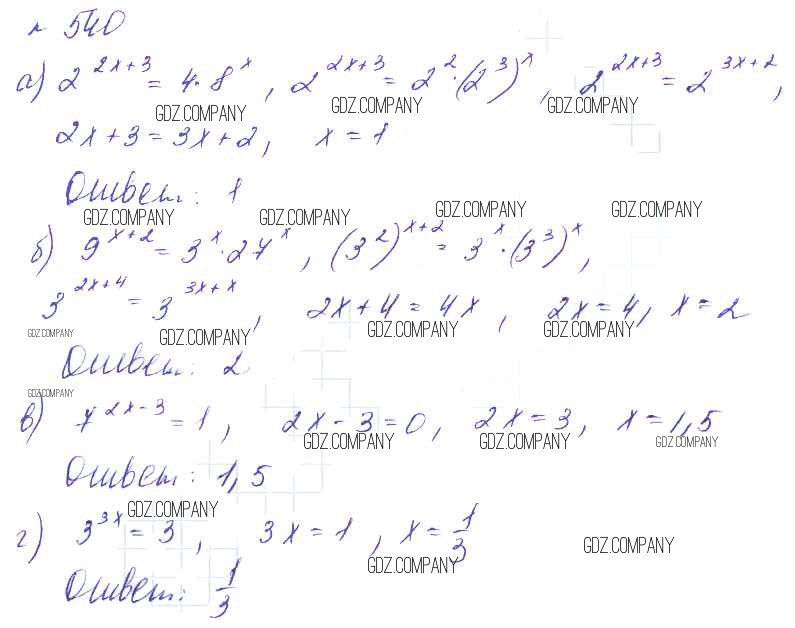 № 540
а) 2^(2x+3) = 4·8^x, 2^(2x+3) = 2^2·(2^3)^x, 2^(2x+3) = 2^(3x+2),
GDZ.COMPANY GDZ.COMPANY GDZ.COMPANY
2x+3=3x+2, x=1
Ответ: 1
GDZ.COMPANY GDZ.COMPANY GDZ.COMPANY GDZ.COMPANY
б) 9^(x+2) = 3^x·27^x, (3^2)^(x+2) = 3^x·(3^3)^x,
3^(2x+4) = 3^(3x+x), 2x+4=4x, 2x=4, x=2
GDZ.COMPANY GDZ.COMPANY GDZ.COMPANY GDZ.COMPANY
Ответ: 2
GDZ.COMPANY
в) 7^(2x-3) = 1, 2x-3=0, 2x=3, x=1,5
GDZ.COMPANY GDZ.COMPANY GDZ.COMPANY
Ответ: 1,5
GDZ.COMPANY
г) 3^(3x) = 3, 3x=1, x=1/3
GDZ.COMPANY GDZ.COMPANY
Ответ: 1/3